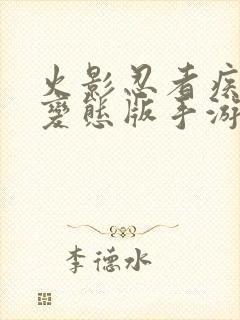 火影忍者疾
變態版手游
李德水